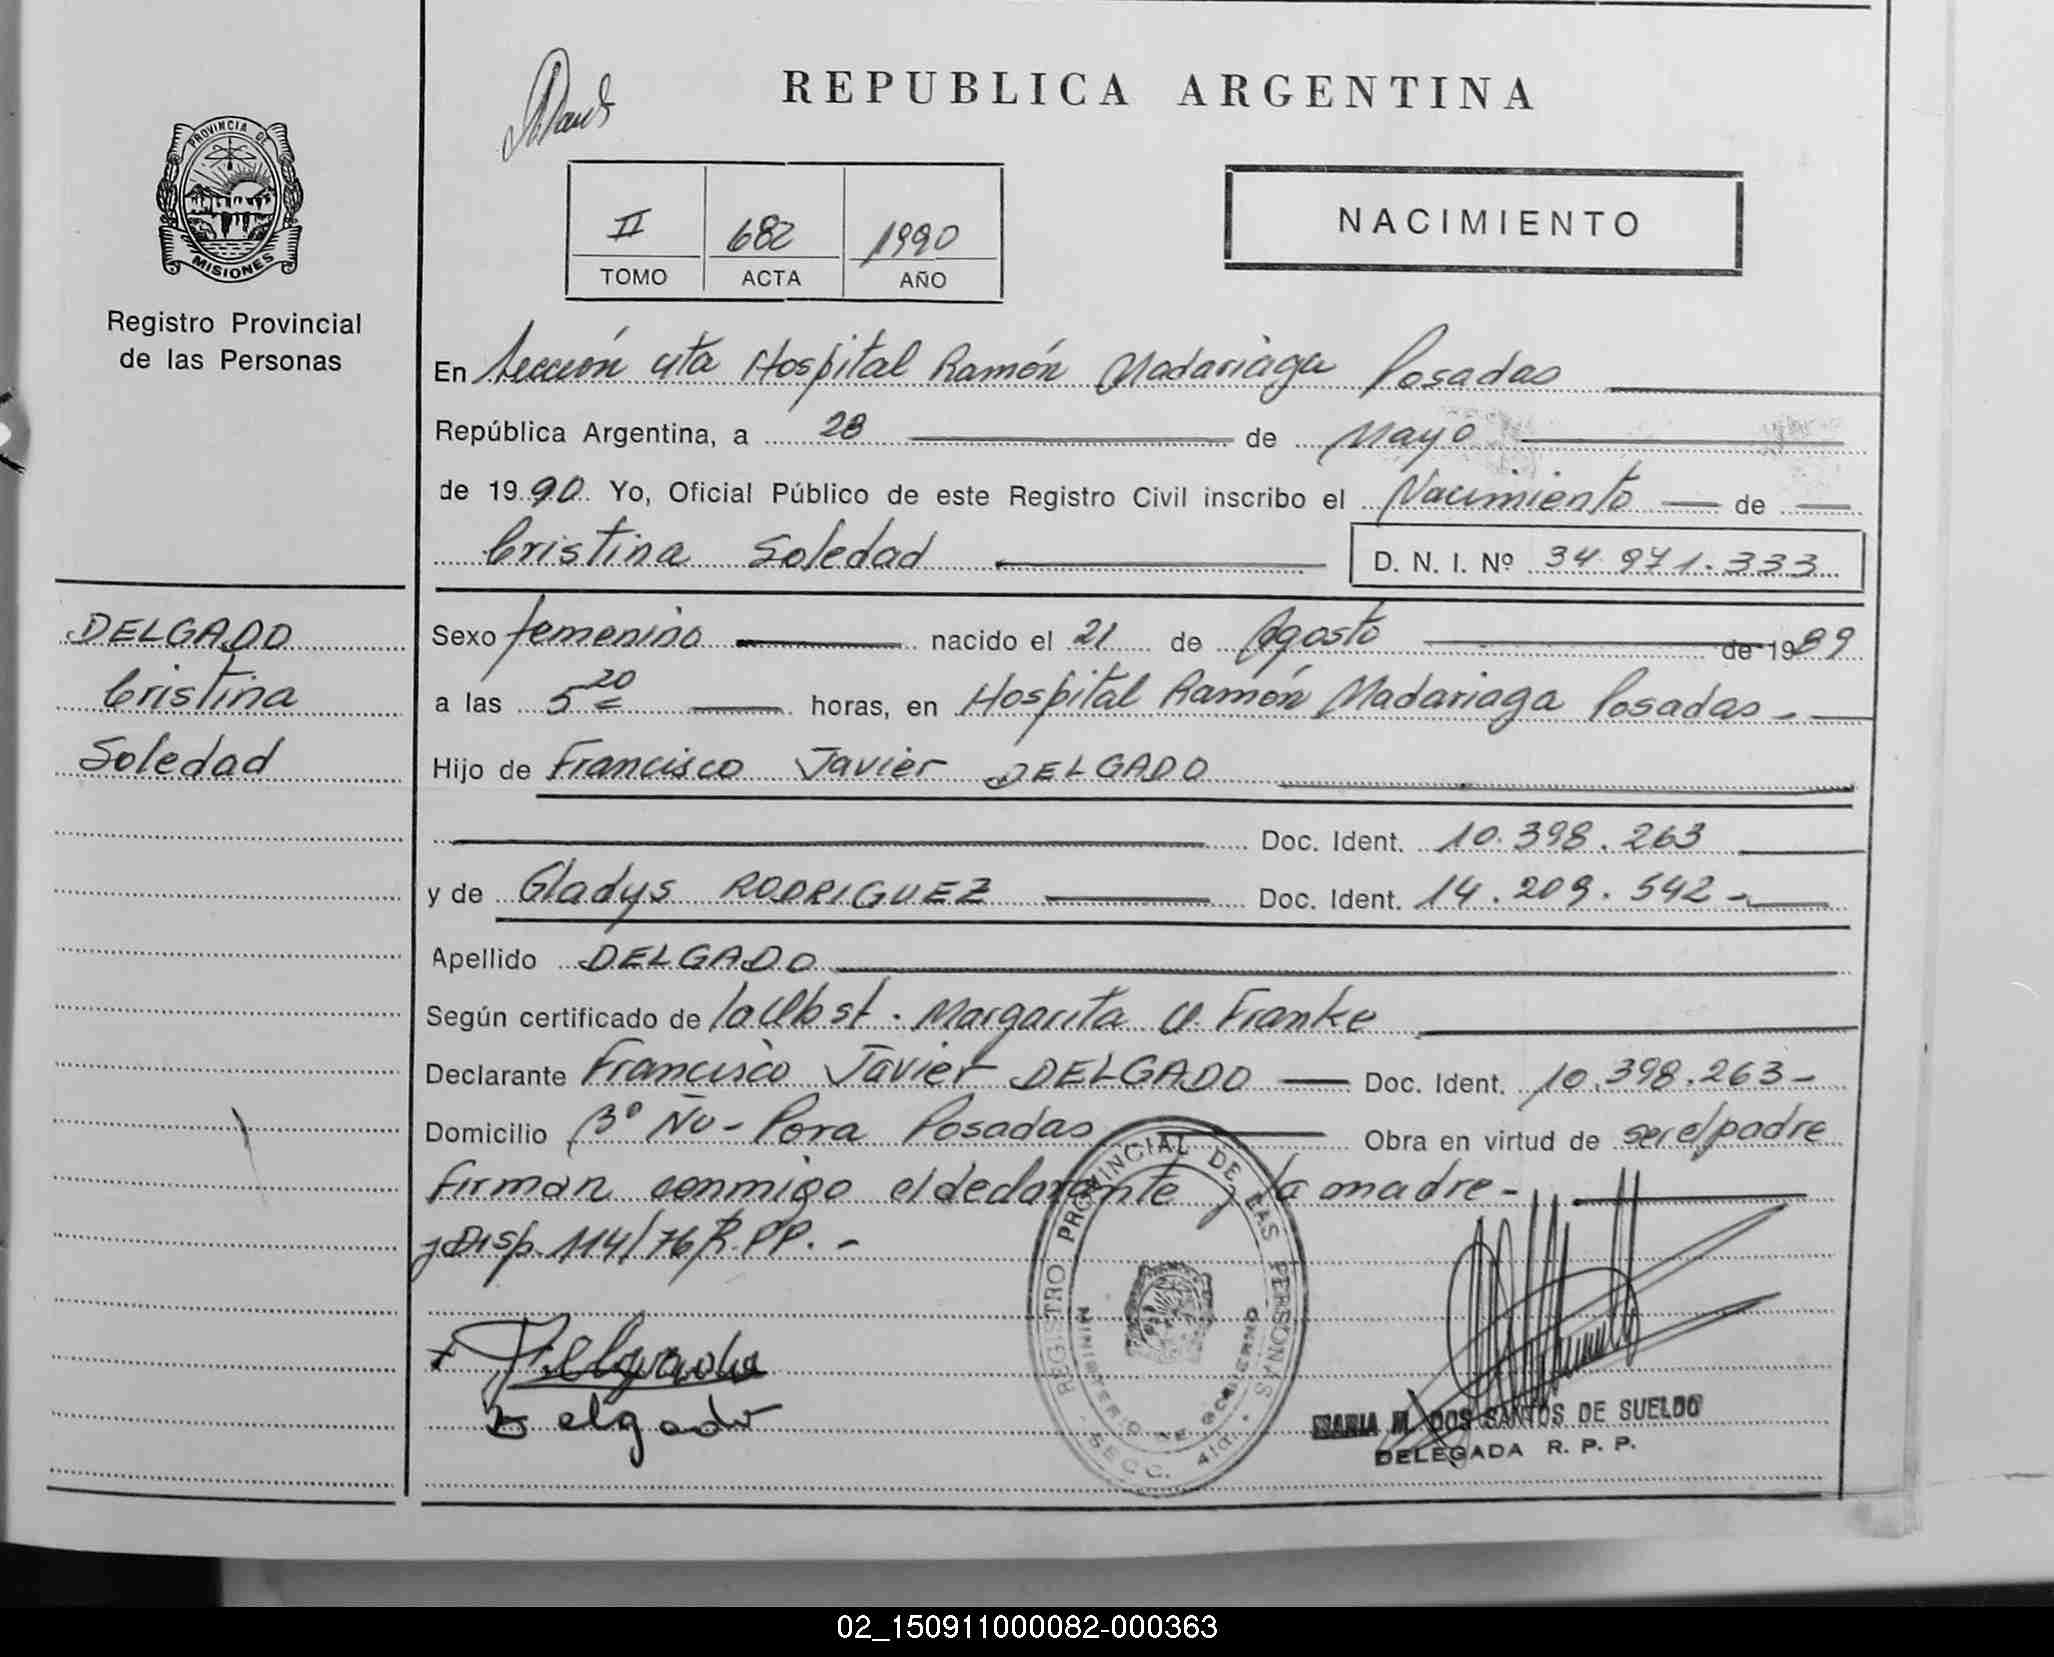 PROVINCIA DE
MISIONES
Registro Provincial
de las Personas
DELGADO
Cristina
Soledad
REPUBLICA ARGENTINA
II 682 1990
TOMO ACTA AÑO
NACIMIENTO
En Sección 4ta Hospital Ramón Madariaga Posadas
República Argentina, a 28 de Mayo
de 1990 Yo, Oficial Público de este Registro Civil inscribo el Nacimiento de
Cristina Soledad D. N. I. Nº 34.971.333
Sexo femenino nacido el 21 de Agosto de 1989
a las 5 20 horas, en Hospital Ramón Madariaga Posadas -
Hijo de Francisco Javier DELGADO
Doc. Ident. 10.398.263
y de Gladys RODRIGUEZ Doc. Ident. 14.209.542 -
Apellido DELGADO
Según certificado de la Obst. Margarita Franke
Declarante Francisco Javier DELGADO Doc. Ident. 10.398.263 -
Domicilio Bº Ñu - Pora Posadas Obra en virtud de ser el padre
firman conmigo el declarante y la madre -
y Disp. 114/76 R.P.P. -
Delgado
REGISTRO PROVINCIAL DE LAS PERSONAS
MINISTERIO DE GOBIERNO
SECC. 4ta.
MARIA M. DOS SANTOS DE SUELDO
DELEGADA R. P. P.
02_150911000082-000363